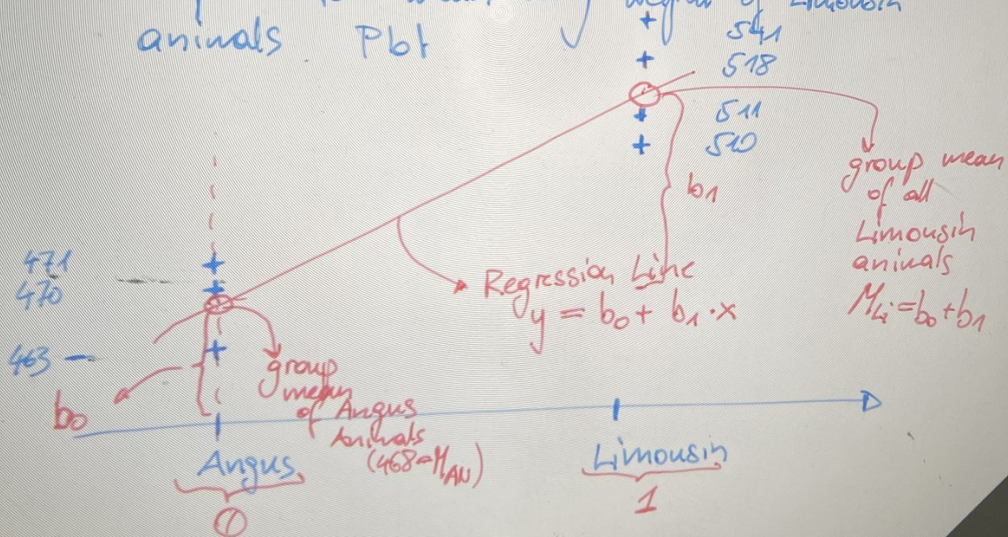 of Limousin
animals Plot
541
518
511
510
group mean
of all
Limousin
animals
M_Li = b0 + b1
b1
471
470
463
Regression Line
y = b0 + b1 · x
b0
group
mean
of Angus
Animals
(468 = M_AN)
Angus
0
Limousin
1